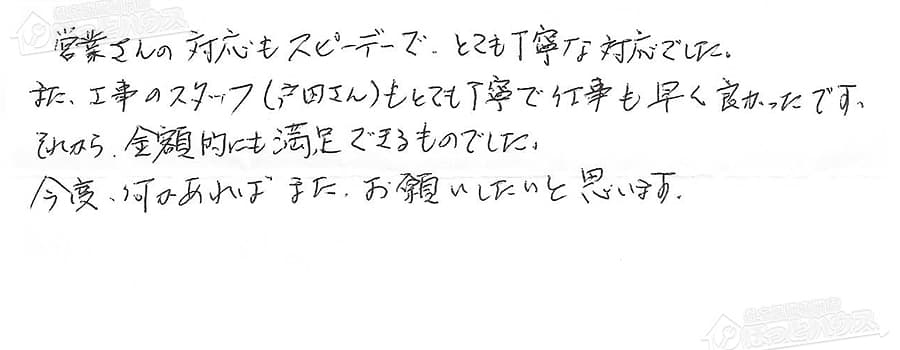 営業さんの対応もスピーデーで、とても丁寧な対応でした。
また、工事のスタッフ(戸田さん)もとても丁寧で仕事も早く良かったです、
それから、金額的にも満足できるものでした。
今度、何かあれば また、お願いしたいと思います。